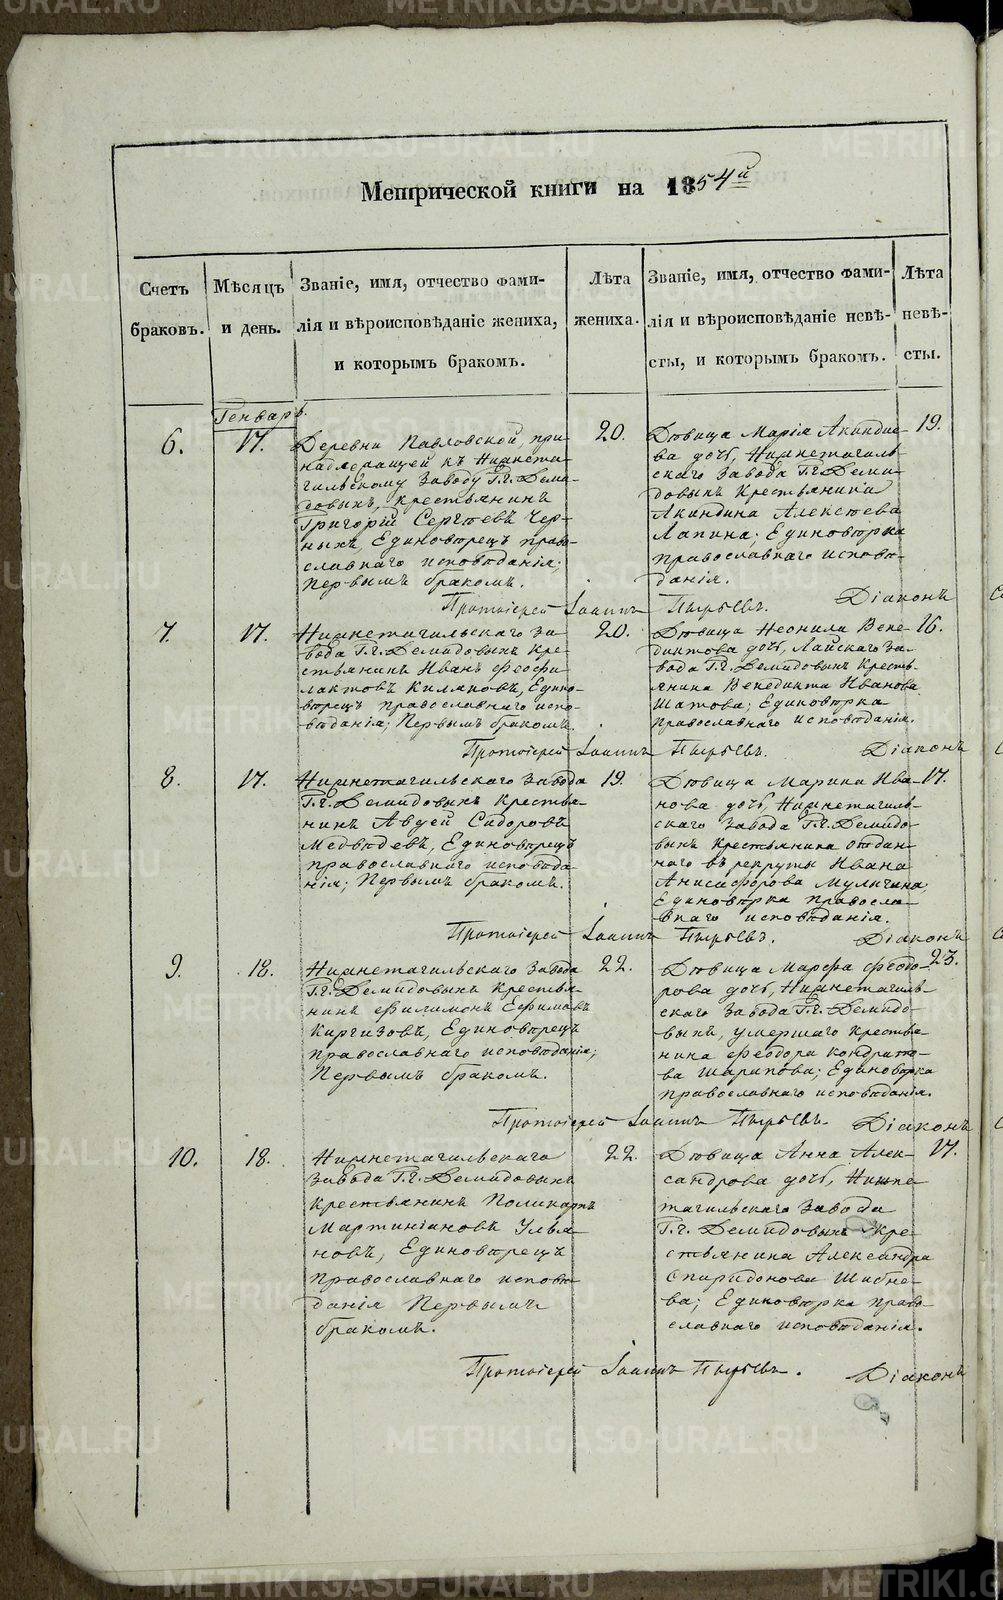 Метрической книги на 1854й
Счетъ браковъ.
Мѣсяцъ и день.
Званіе, имя, отчество фами-
лія и вѣроисповѣданіе жениха,
и которымъ бракомъ.
Лѣта жениха.
Званіе, имя, отчество фами-
лія и вѣроисповѣданіе невѣ-
сты, и которымъ бракомъ.
Лѣта невѣ-
сты.
Генварь.
6.
17.
Деревни Павловской, при-
надлежащей къ Нижнета-
гильскому заводу Г.г. Деми-
довыхъ, крестьянинъ
Григорій Сергѣевъ Чер-
ныхъ, Единовѣрецъ право-
славнаго исповѣданія;
первымъ бракомъ.
20.
Дѣвица Марія Акиндие-
ва дочь, Нижнетагиль-
скаго завода Г.г. Деми-
довыхъ крестьянина
Акиндина Алексѣева
Лапина; Единовѣрка
православнаго исповѣ-
данія.
19.
Протоіерей Іоаннъ Пырьевъ. Діаконъ
7.
17.
Нижнетагильскаго за-
вода Г.г. Демидовыхъ кре-
стьянинъ Иванъ Феофи-
лактовъ Килявовъ, Едино-
вѣрецъ православнаго испо-
вѣданія; Первымъ бракомъ.
20.
Дѣвица Неонила Вене-
диктова дочь, Лайскаго за-
вода Г.г. Демидовыхъ кресть-
янина Венедикта Иванова
Шатова; Единовѣрка
православнаго исповѣданія.
16.
Протоіерей Іоаннъ Пырьевъ. Діаконъ
8.
17.
Нижнетагильскаго завода
Г.г. Демидовыхъ крестья-
нинъ Авдей Сидоровъ
Медвѣдевъ, Единовѣрецъ
православнаго исповѣда-
нія; Первымъ бракомъ.
19.
Дѣвица Марина Ива-
нова дочь, Нижнетагиль-
скаго завода Г.г. Демидо-
выхъ крестьянина отдан-
наго въ рекруты Ивана
Анисифорова Мулыгина,
Единовѣрка правосла-
внаго исповѣданія.
17.
Протоіерей Іоаннъ Пырьевъ. Діаконъ
9.
18.
Нижнетагильскаго завода
Г.г. Демидовыхъ крестья-
нинъ Филимонъ Ефимовъ
Киргизовъ, Единовѣрецъ
православнаго исповѣданія;
Первымъ бракомъ.
22.
Дѣвица Марѳа Феодо-
рова дочь, Нижнетагиль-
скаго завода Г.г. Демидо-
выхъ, умершаго крестья-
нина Феодора Кондрато-
ва Шарапова; Единовѣрка
православнаго исповѣданія.
23.
Протоіерей Іоаннъ Пырьевъ. Діаконъ
10.
18.
Нижнетагильскаго
завода Г.г. Демидовыхъ
крестьянинъ Поликарпъ
Мартиніановъ Улья-
новъ, Единовѣрецъ
православнаго исповѣ-
данія Первымъ
бракомъ.
22.
Дѣвица Анна Алек-
сандрова дочь, Нижне-
тагильскаго завода
Г.г. Демидовыхъ кре-
стьянина Александра
Спиридонова Шибне-
ва; Единовѣрка право-
славнаго исповѣданія.
17.
Протоіерей Іоаннъ Пырьевъ. Діаконъ
METRIKI.GASO-URAL.RU